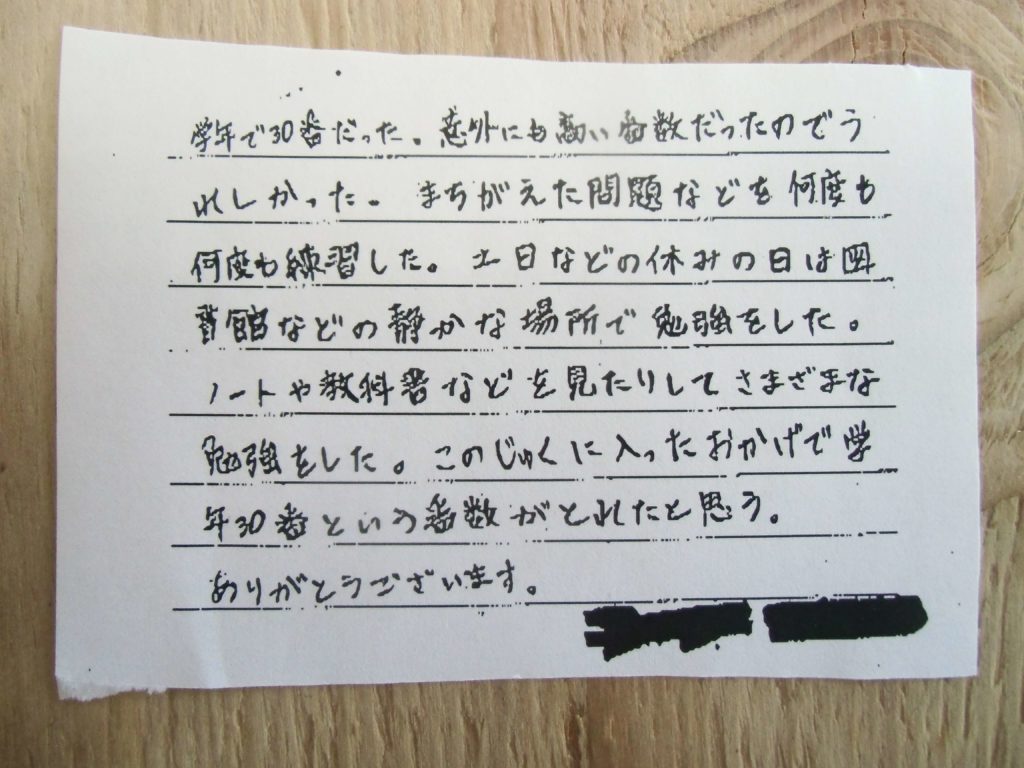 学年で30番だった。意外にも高い番数だったのでう
れしかった。まちがえた問題などを何度も
何度も練習した。土日などの休みの日は図
書館などの静かな場所で勉強をした。
ノートや教科書などを見たりしてさまざまな
勉強をした。このじゅくに入ったおかげで学
年30番という番数がとれたと思う。
ありがとうございます。